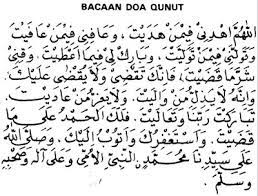 BACAAN DOA QUNUT
اَللّٰهُمَّ اهْدِنِيْ فِيْمَنْ هَدَيْتَ ، وَعَافِنِيْ فِيْمَنْ عَافَيْتَ
وَتَوَلَّنِيْ فِيْمَنْ تَوَلَّيْتَ ، وَبَارِكْ لِيْ فِيْمَا اَعْطَيْتَ . وَقِنِيْ
شَرَّ مَا قَضَيْتَ ، فَاِنَّكَ تَقْضِيْ وَلَا يُقْضٰى عَلَيْكَ
وَاِنَّهُ لَا يَذِلُّ مَنْ وَالَيْتَ . وَلَا يَعِزُّ مَنْ عَادَيْتَ
تَبَارَكْتَ رَبَّنَا وَتَعَالَيْتَ . فَلَكَ الْحَمْدُ عَلٰى مَا
قَضَيْتَ . وَاَسْتَغْفِرُكَ وَاَتُوْبُ اِلَيْكَ . وَصَلَّى اللهُ
عَلٰى سَيِّدِنَا مُحَمَّدٍ النَّبِيِّ الْاُمِّيِّ وَعَلٰى اٰلِهِ وَصَحْبِهِ
وَسَلَّمَ